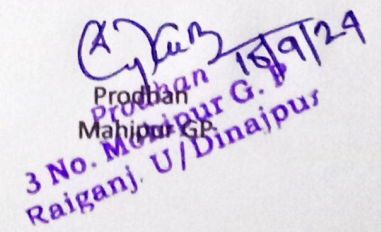 18/9/24
Prodhan
Mahipur GP
Prodhan
3 No. Mohipur G. P
Raiganj. U/Dinajpur